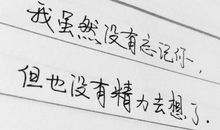 我虽然没有忘记你,
但也没有精力去想了.